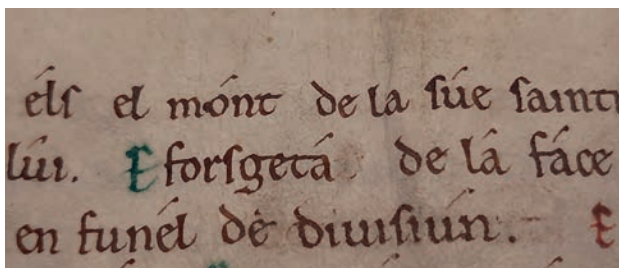 éls el mónt de la súe sainti
lúi. E forsgetá de lá fáce
en funél dè diuisiún. E